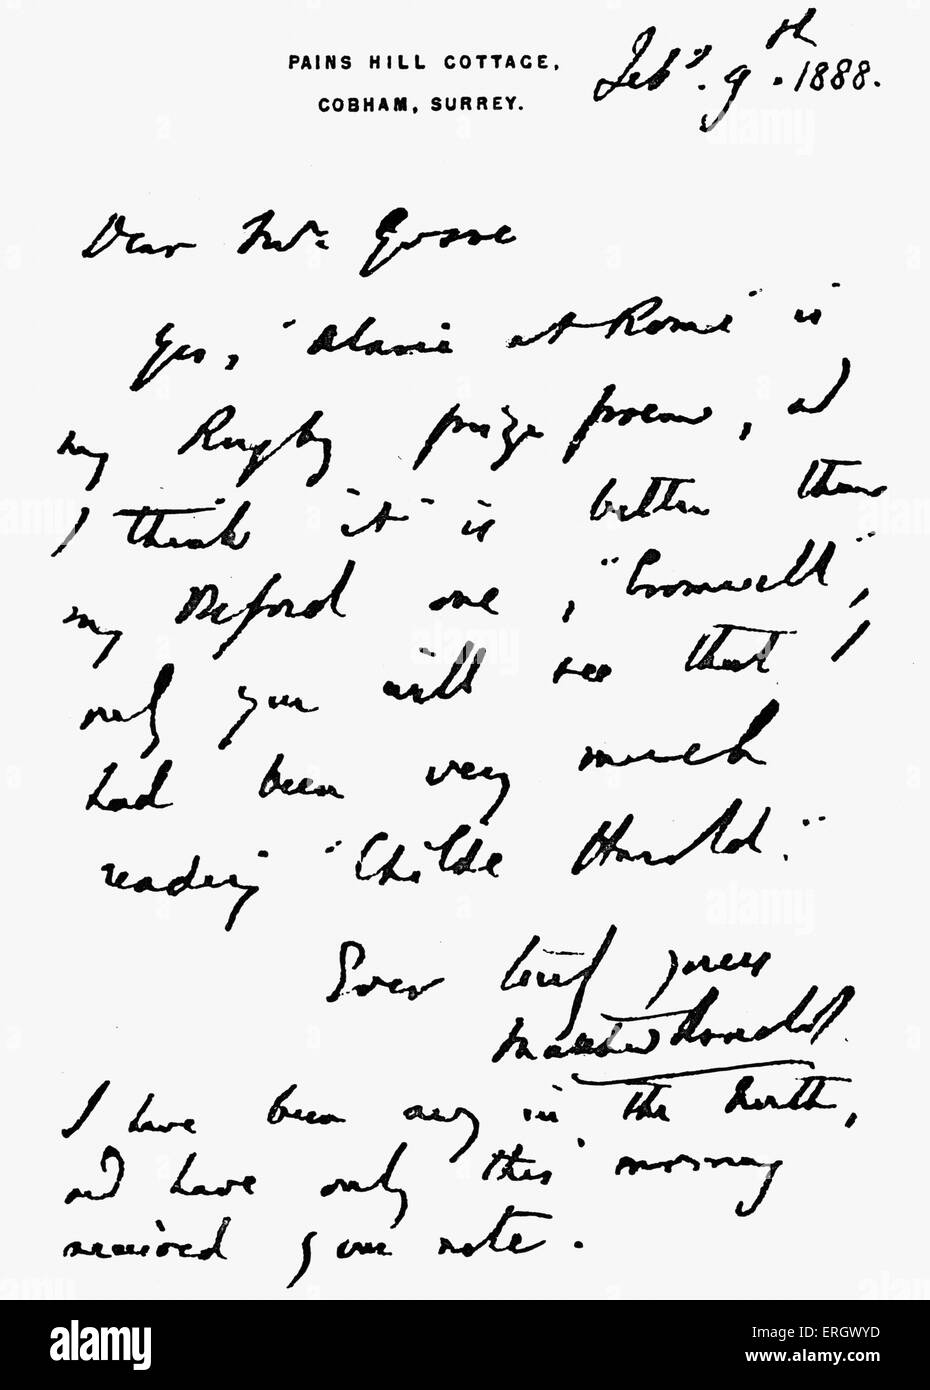 PAINS HILL COTTAGE,
COBHAM, SURREY.
Feby. 9th. 1888.
Dear Mr. Gosse
Yes, "Alaric at Rome" is
my Rugby prize poem, and
I think it is better than
my Oxford one, "Cromwell",
only you will see that I
had been very much
reading "Childe Harold."
Ever truly yours
Matthew Arnold.
I have been away in the North,
and have only this morning
received your note.
alamy
Image ID: ERGWYD
www.alamy.com